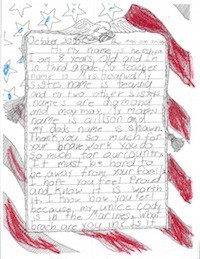 October
Hi, my name is
I am 8 years old and I'm
in third grade My teacher
name is Mrs. My
sister name is
and my two other sisters
names are diamond
and My moms
name is and
my dads name is shawn
Thank you so much for
your brave work you do
so much for our country.
It must be hard to
be away from your family.
I hope you feel Proud
and know it is worth
it. I know how you feel
because my uncle Cody
is in the Marines. What
brach are you in? Is it